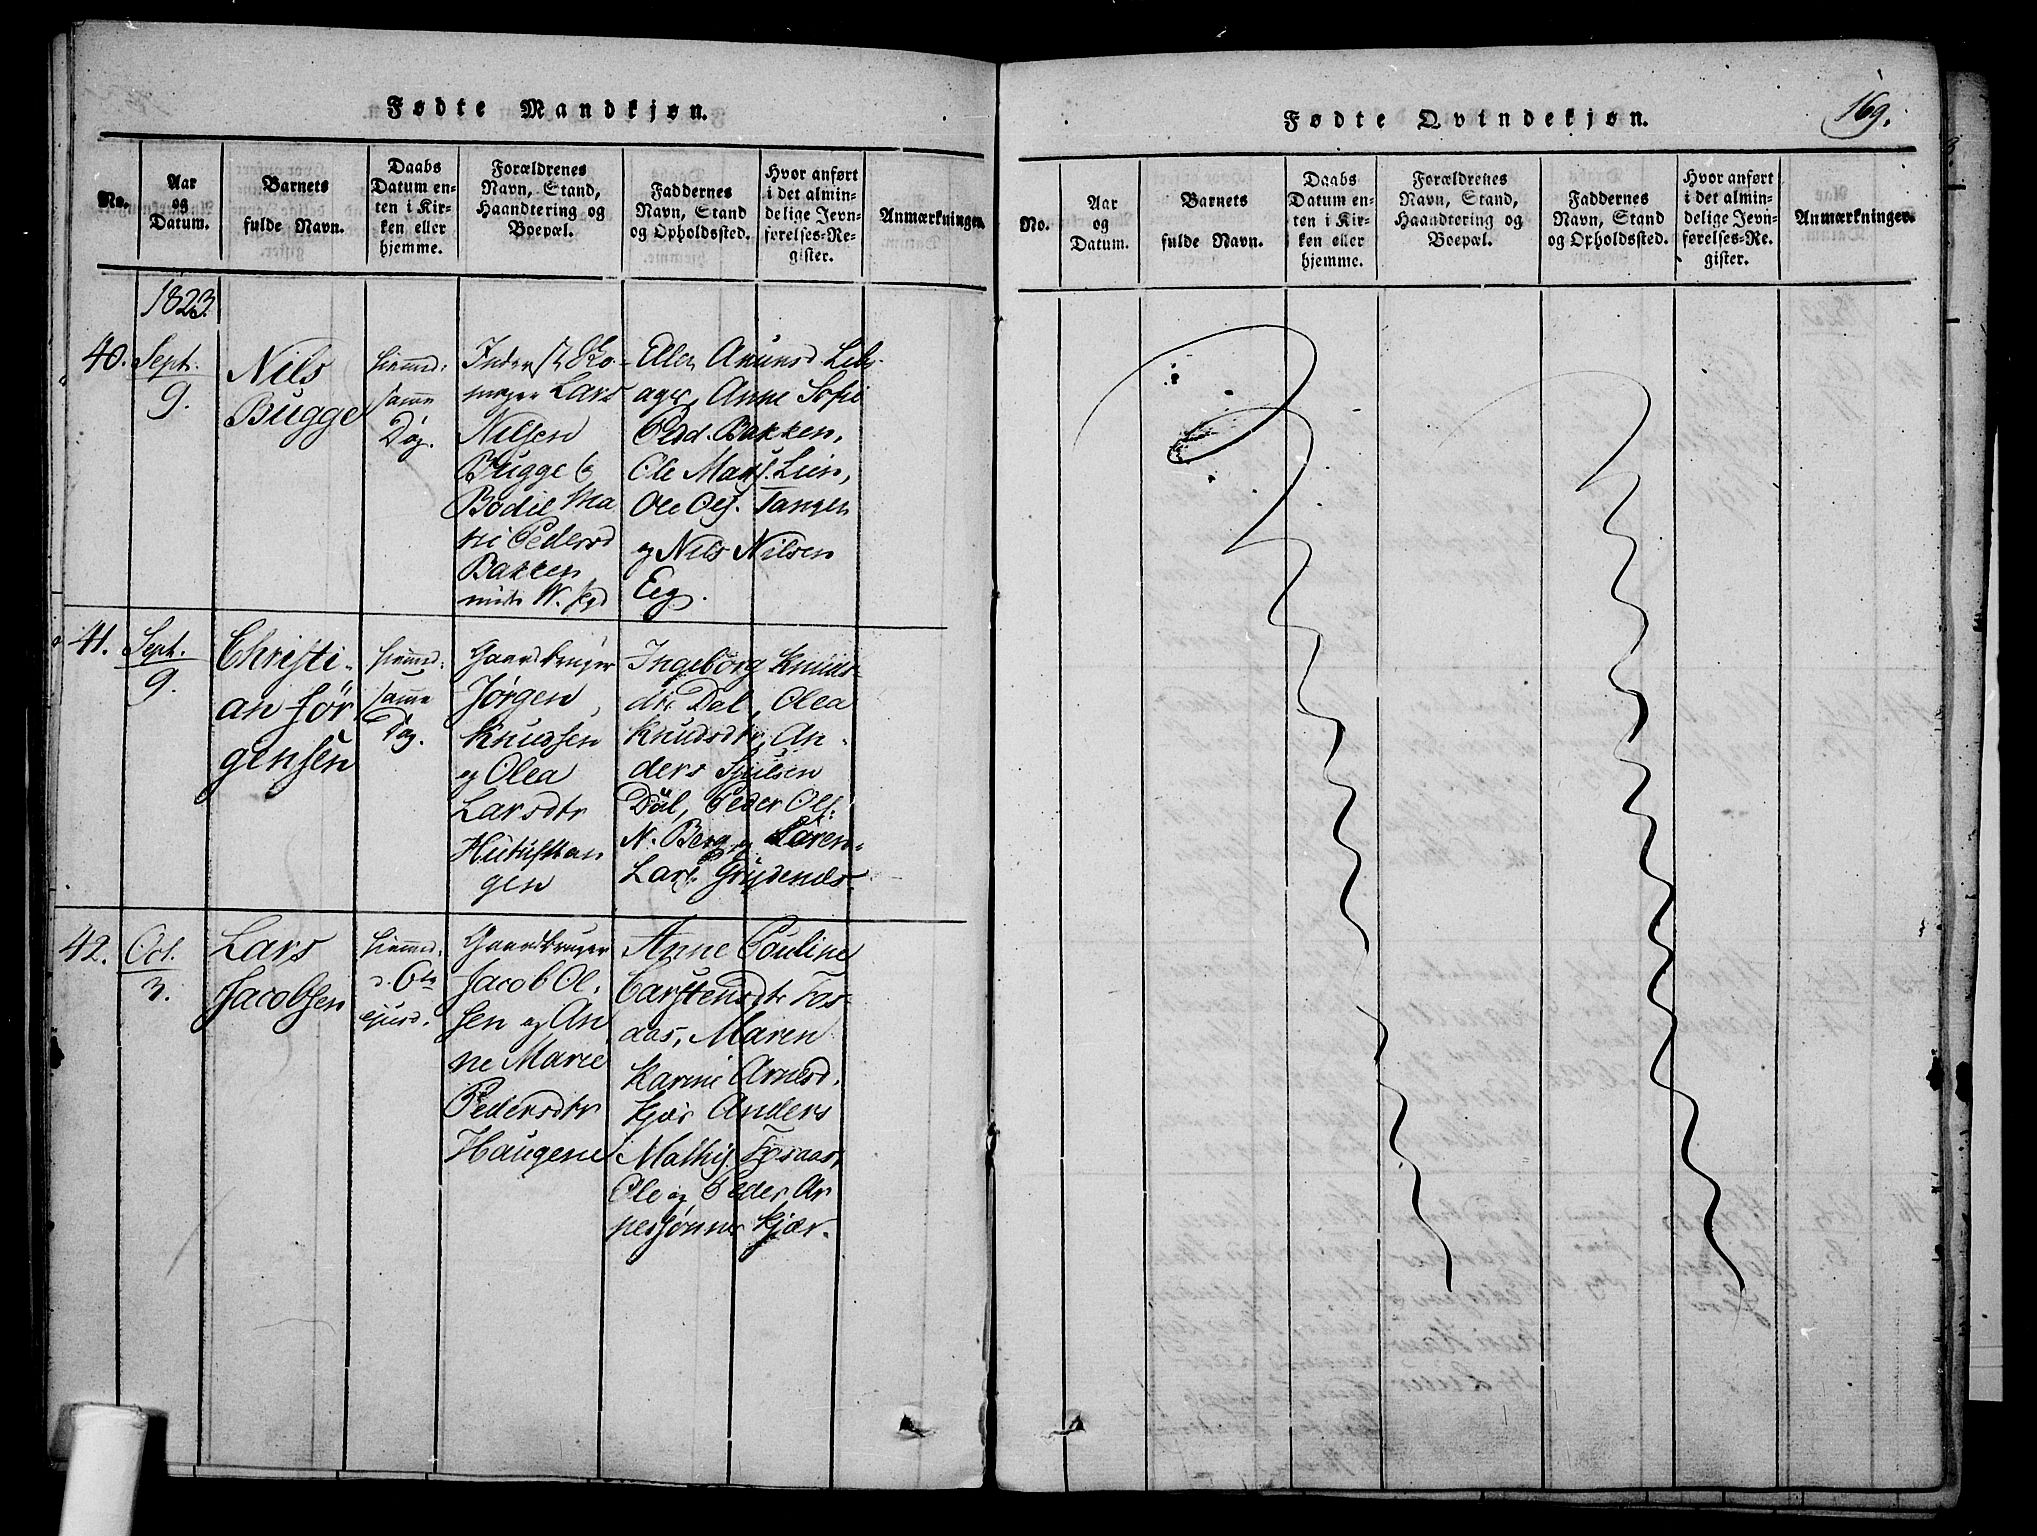 Fødte Mandkjøn.
No.
Aar
og
Datum.
Barnets
fulde Navn.
Daabs
Datum en-
ten i Kir-
ken eller
hjemme.
Forældrenes
Navn, Stand,
Haandtering og
Boepæl.
Faddernes
Navn, Stand
og Opholdssted.
Hvor anført
i det almin-
delige Jevn-
førelses-Re-
gister.
Anmærkninger.
1823.
40.
Sept.
9.
Nils
Bugge
hiemmed:
samme
Dag.
Inderst
mager Lars
Nilsen
Bugge &
Bodil Ma
rie Pedersd
Bakken
Ellen Amunsd.
Anne Sofie
Ped. Bakken,
Ole Mads. Lien,
Ole Ols. Tangen
og Nils Nilsen
Eeg.
41.
Sept.
9.
Christi-
an Jør
gensen
hiemmed:
samme
Dag.
Gaardbruger
Jørgen
Knudsen
og Olea
Larsdtr
gen
Ingeborg Knuds-
dtr Dal, Olea
Knudsdtr, An-
ders
Dal, Peder Ols.
N. Berg og Søren
Lars.
42.
Oct.
3.
Lars
Jacobsen
hiemmed.
d. 6te
ejusd.
Gaardbruger
Jacob Ol-
sen og An
ne Marie
Pedersdtr
Haugene
Anne Pouline
Carstensdtr Fos-
aas, Maren
Karine Arnesd.
Kjær Anders
Mathis. Fosaas,
Ole og Peder Ar
nessønner Kjær.
Fødte Qvindekjøn.
169.
No.
Aar
og
Datum.
Barnets
fulde Navn.
Daabs
Datum en-
ten i Kir-
ken eller
hjemme.
Forældrenes
Navn, Stand,
Haandtering og
Boepæl.
Faddernes
Navn, Stand
og Opholdssted.
Hvor anført
i det almin-
delige Jevn-
førelses-Re-
gister.
Anmærkninger.